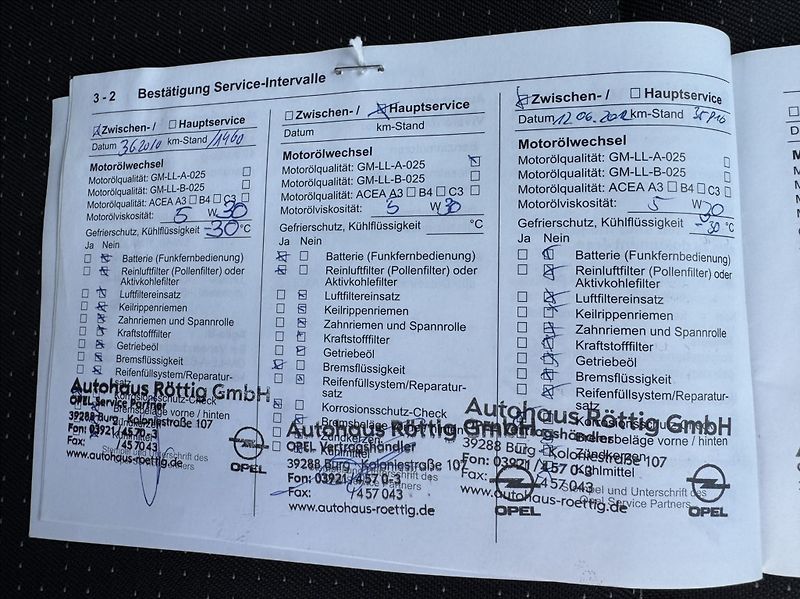 3 - 2 Bestätigung Service-Intervalle
Zwischen- / Hauptservice
Datum 3.6.2010 km-Stand
Motorölwechsel
Motorölqualität: GM-LL-A-025
Motorölqualität: GM-LL-B-025
Motorölqualität: ACEA A3 B4 C3
Motorölviskosität: 5 W 30
Gefrierschutz, Kühlflüssigkeit -30 °C
Ja Nein
Batterie (Funkfernbedienung)
Reinluftfilter (Pollenfilter) oder
Aktivkohlefilter
Luftfiltereinsatz
Keilrippenriemen
Zahnriemen und Spannrolle
Kraftstofffilter
Getriebeöl
Bremsflüssigkeit
Reifenfüllsystem/Reparatur-
satz
Autohaus Röttig GmbH
OPEL Service Partner
Korrosionsschutz-Check
39288 Burg Koloniestraße 107
Bremsbeläge vorne / hinten
Fon: 03921 / 45 70-3
Fax: / 45 70 43
www.autohaus-roettig.de
OPEL
Zwischen- / Hauptservice
Datum km-Stand
Motorölwechsel
Motorölqualität: GM-LL-A-025
Motorölqualität: GM-LL-B-025
Motorölqualität: ACEA A3 B4 C3
Motorölviskosität: 5 W 30
Gefrierschutz, Kühlflüssigkeit °C
Ja Nein
Batterie (Funkfernbedienung)
Reinluftfilter (Pollenfilter) oder
Aktivkohlefilter
Luftfiltereinsatz
Keilrippenriemen
Zahnriemen und Spannrolle
Kraftstofffilter
Getriebeöl
Bremsflüssigkeit
Reifenfüllsystem/Reparatur-
satz
Korrosionsschutz-Check
Autohaus Röttig GmbH
OPEL Vertragshändler
Zündkerzen
39288 Burg Koloniestraße 107
Fon: 03921 / 4 57 0-3
Fax: / 4 57 043
www.autohaus-roettig.de
OPEL
Zwischen- / Hauptservice
Datum 12.06.2012 km-Stand
Motorölwechsel
Motorölqualität: GM-LL-A-025
Motorölqualität: GM-LL-B-025
Motorölqualität: ACEA A3 B4 C3
Motorölviskosität: 5 W 30
Gefrierschutz, Kühlflüssigkeit -30 °C
Ja Nein
Batterie (Funkfernbedienung)
Reinluftfilter (Pollenfilter) oder
Aktivkohlefilter
Luftfiltereinsatz
Keilrippenriemen
Zahnriemen und Spannrolle
Kraftstofffilter
Getriebeöl
Bremsflüssigkeit
Reifenfüllsystem/Reparatur-
satz
Korrosionsschutz-Check
Autohaus Röttig GmbH
Bremsbeläge vorne / hinten
Zündkerzen
39288 Burg Koloniestraße 107
Kühlmittel
Fon: 03921 / 4 57 0-3
Fax: / 4 57 043
Stempel und Unterschrift des
Opel Service Partners
www.autohaus-roettig.de
OPEL